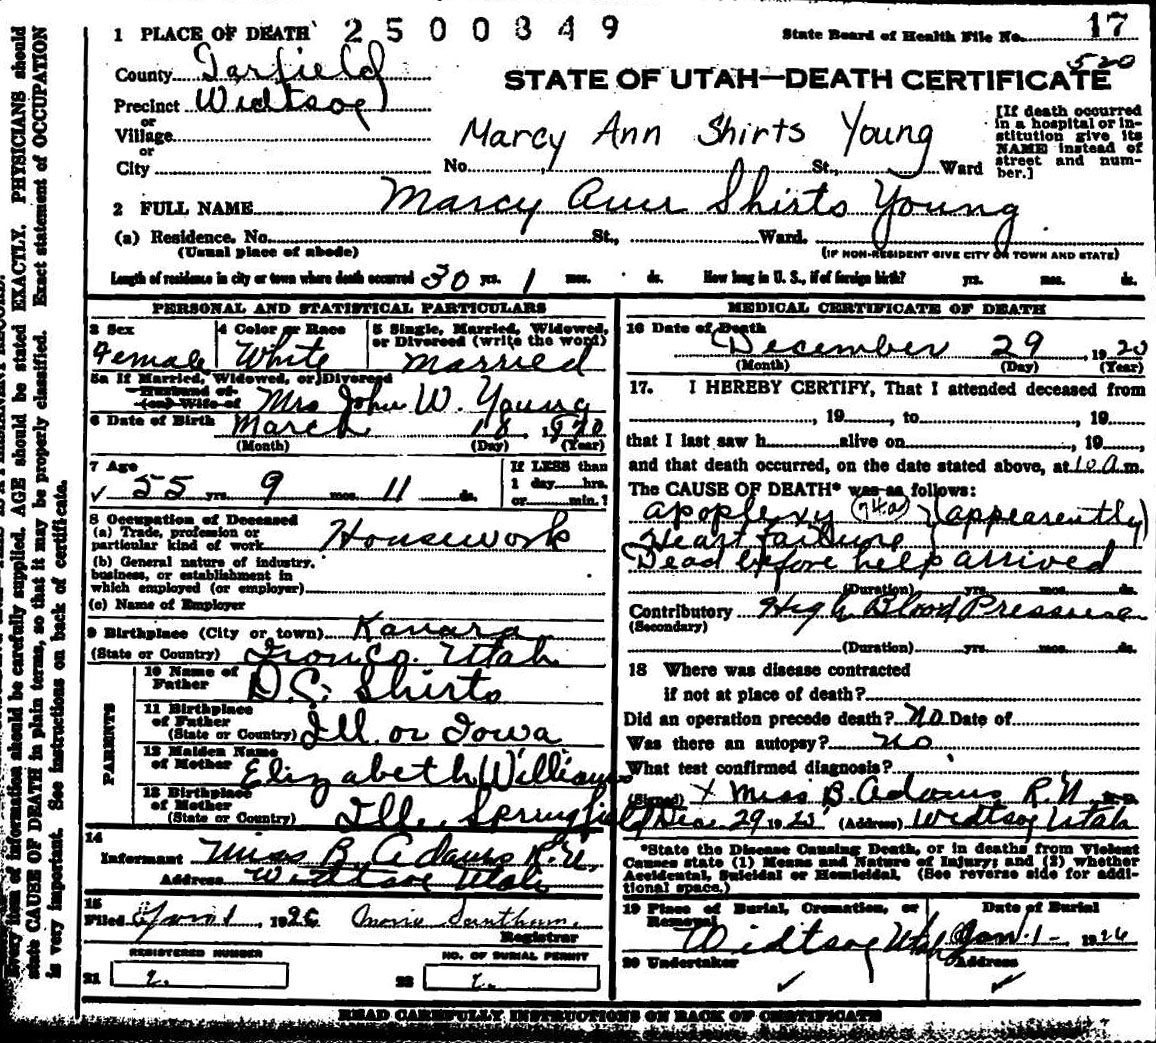 1 PLACE OF DEATH 2500849 State Board of Health File No. 17
520
County Garfield STATE OF UTAH—DEATH CERTIFICATE
Precinct Widtsoe
or
Village
or
City No. St., Ward
Marcy Ann Shirts Young
[If death occurred in a hospital or institution give its NAME instead of street and number.]
2 FULL NAME Marcy Ann Shirts Young
(a) Residence. No. St., Ward.
(Usual place of abode) (IF NON-RESIDENT GIVE CITY OR TOWN AND STATE)
Length of residence in city or town where death occurred 30 yrs. 1 mos. ds. How long in U. S., if of foreign birth? yrs. mos. ds.
PERSONAL AND STATISTICAL PARTICULARS
3 Sex 4 Color or Race 5 Single, Married, Widowed, or Divorced (write the word)
Female White Married
5a If Married, Widowed, or Divorced
Husband of
(or) Wife of Mrs John W. Young
6 Date of Birth March 18
(Month) (Day) (Year)
7 Age If LESS than
1 day hrs.
or min.?
55 yrs. 9 mos. 11 ds.
8 Occupation of Deceased
(a) Trade, profession or particular kind of work Housework
(b) General nature of industry, business, or establishment in which employed (or employer)
(c) Name of Employer
9 Birthplace (City or town) Kanara
(State or Country) Iron Co. Utah
PARENTS
10 Name of Father D.C. Shirts
11 Birthplace of Father
(State or Country) Ill. or Iowa
12 Maiden Name of Mother Elizabeth Williams
13 Birthplace of Mother
(State or Country) Ill. Springfield
14
Informant Miss B. Adams R.N.
Address Widtsoe Utah
15
Filed Jan 1 1926
Registrar
REGISTERED NUMBER NO. OF BURIAL PERMIT
21 22
MEDICAL CERTIFICATE OF DEATH
16 Date of Death
December 29, 19
(Month) (Day) (Year)
17. I HEREBY CERTIFY, That I attended deceased from
, 19 , to , 19
that I last saw h alive on , 19
and that death occurred, on the date stated above, at 10 a.m.
The CAUSE OF DEATH* was as follows:
apoplexy (74a) } (appearently)
Heart Failure
Dead before help arrived
(Duration) yrs. mos. ds.
Contributory High Blood Pressure
(Secondary)
(Duration) yrs. mos. ds.
18 Where was disease contracted
if not at place of death?
Did an operation precede death? No Date of
Was there an autopsy? no
What test confirmed diagnosis?
(Signed) x Miss B. Adams R.N. M.D.
Dec. 29 1925 (Address) Widtsoe Utah
*State the Disease Causing Death, or in deaths from Violent
Causes state (1) Means and Nature of Injury; and (2) whether
Accidental, Suicidal or Homicidal. (See reverse side for additional space.)
19 Place of Burial, Cremation, or Removal Date of Burial
Widtsoe Utah Jan. 1- 1926
20 Undertaker Address
READ CAREFULLY INSTRUCTIONS ON BACK OF CERTIFICATE
Every item of information should be carefully supplied. AGE should be stated EXACTLY. PHYSICIANS should
state CAUSE OF DEATH in plain terms, so that it may be properly classified. Exact statement of OCCUPATION
is very important. See instructions on back of certificate.